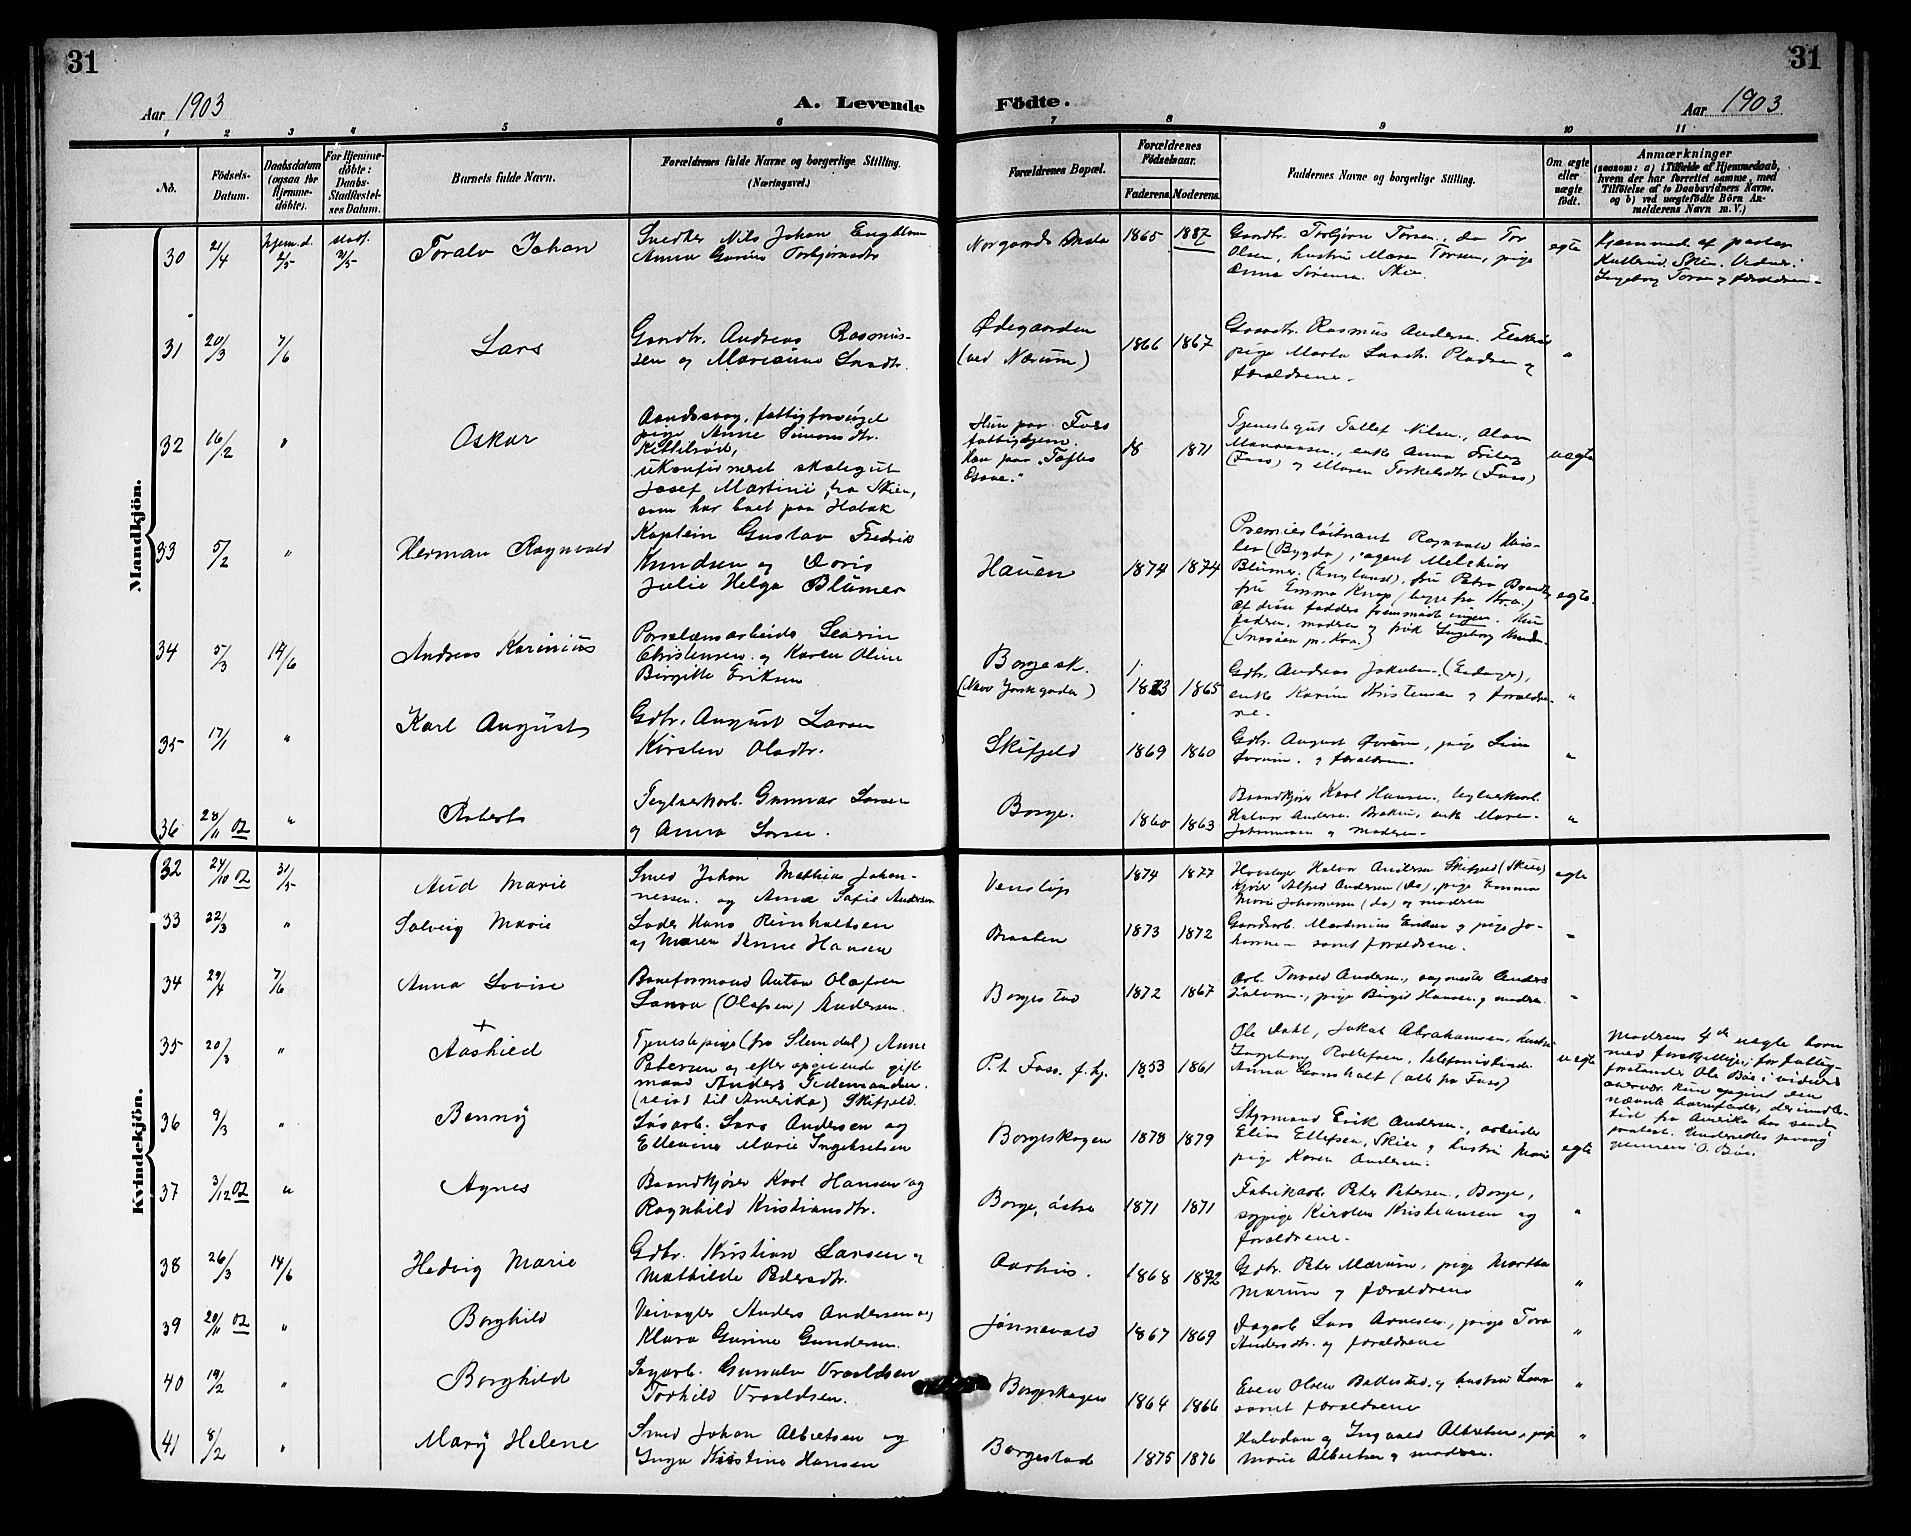 31
31
Aar 1903
A. Levende
Födte.
Aar 1903
1 2 3 4 5 6 7 8 9 10 11
No.
Födsels-
Datum.
Daabsdatum
(ogsaa for
Hjemme-
döbte).
For Hjemme-
döbte:
Daabs-
Stadfæstel-
ses Datum.
Barnets fulde Navn.
Forældrenes fulde Navne og borgerlige Stilling.
(Næringsvei.)
Forældrenes Bopæl.
Forældrenes
Födselsaar.
Faderens.
Moderens.
Faddernes Navne og borgerlige Stilling.
Om ægte
eller
uægte
födt.
Anmærkninger
(saasom: a) i Tilfælde af Hjemmedaab,
hvem der har forrettet samme, med
Tilföielse af to Daabsvidners Navne,
og b) ved uægtefödte Börn An-
melderens Navn m. V.)
Mandkjön.
30 21/4 hjem.d. 2/5 stadf. 31/5 Toralv Johan
Snedker Nils Johan
Anna Gurine Torbjörnsdtr
1865 1887
Gaardbr. Torbjörn Torsen, do Tor
Olsen, hustru Maren Torsen, pige
Anna Sörensen Skien.
egte
Hjemmed. af pastor
Skien. Vidner:
Ingeborg Torsen og forældrene
31 20/3 7/6 Lars
Gaardbr. Andreas Rasmus-
sen og Marianne Larsdtr.
Ödegaarden
(ved Nærum)
1866 1867
Gaardbr. Rasmus Andersen
pige Marta Larsdtr. Pladsen og
forældrene.
"
32 16/2 " Oskar
Aandssvag, fattigforsörget
pige Anne Simonsdtr.
Kittilröd,
ukonfirmeret skolegut
Josef Martini fra Skien,
som har boet paa Holtak
Hun paa Foss
fattighjem.
Han paa "Toftes
Gave."
18 1871
Tjenestegut Tallef Nilsen, Olav
enke Anna
(Foss) og Maren Torkelsdtr (Foss)
uegte
33 5/2 " Herman Ragnvald
Kaptein Gustav Fredrik
Knudsen og Doris
Julie Helga Blümer
Hauen
1874 1874
Premierlöitnant Ragnvald
(Bygdö), agent Melchior
Blümer (England), fru Petra
fru Emma Knap (begge fra Kr.a.)
Af disse faddere fremmödt ingen. Kun
fadren, modren og frök Ingeborg
(Snaröen pr. Kra.)
egte.
34 5/3 14/6 Andreas Karinius
Porselænsarbeider Severin
Christensen og Karen Oline
Birgitte Eriksen
Borgesk.
1873 1865
Gdbr. Andreas Jakobsen (Eidanger),
enke Karine Kristensen og forældre-
ne.
"
35 17/1 " Karl August
Gdbr. August Larsen
Kirsten Olsdtr.
Skifjeld
1869 1860
Gdbr. August pige Lina
og forældrene.
"
36 28/11 02 " Robert
Teglverkarb. Gunnar Larsen
og Anna Larsen.
Borge.
1860 1863
Brandkjörer Karl Hansen, teglverkarb.
Halvor Andersen Brekke, enke Maren
Johannessen og modren
"
Kvindekjön.
32 24/10 02 31/5 Aud Marie
Smed Johan Mathias Johan-
nessen og Anna Sofie Andersen
Venslöp
1874 1877
Halvor Andersen Skifjeld (Skien)
Alfred Andersen (do), pige Emma
Marie Johannessen (do) og modren
egte
33 22/3 " Solveig Marie
Lodser Hans Reinholtsen
og Maren Hanne Hansen
Braaten
1873 1872
Gaardarb. Martinius Eriksen og pige Jo-
hanne samt forældrene.
"
34 29/4 7/6 Anna Lovise
Baneformand Anton Olafsen
Lanva (Olafsen) Andersen.
Borgestad
1872 1867
Arb. Torvald Andersen, Anders
pige Birgit Hansen og modren
"
35 20/3 "
+
Aashild
Tjenestepige (fra Slemdal) Anne
Petersen og efter opgivende gift
mand Anders Tidemandsen
(reist til Amerika) Skifjeld.
P.t. Foss f.hj.
1853 1861
Ole Dahl, Jakob Abrahamsen, hustru
Ingeborg Rollefsen, telefonistinde
Anna Gonsholt (alle fra Foss)
uegte
Modrens 4de uegte barn
med forskjellige; for fattig-
forstander Ole Böe i vidners
overvær. Hun opgivet den
nævnte barnefader, der imidler-
tid fra Amerika har sendt
protest. Underrettes
O. Böe.
36 9/3 " Benny
Lars Andersen og
Ellevine Marie Ingebretsen
Borgeskogen
1878 1879
Styrmand Erik Andersen, arbeider
Elias Ellefsen, Skien og hustru Marie
pige Karen Andersen.
egte
37 3/12 02 " Agnes
Brandkjörer Karl Hansen og
Ragnhild Kristiansdtr.
Borge, östre
1871 1871
Fabrikarb. Peter Petersen, Borge,
sypige Kirsten Kristiansen og
forældrene.
"
38 26/3 14/6 Hedvig Marie
Gdbr. Kristian Larsen og
Mathilde Pedersdtr.
Aarhus.
1868 1872
Gdbr. Peter Mærum, pige Martha
Mærum og forældrene
"
39 20/11 02 " Borghild
Veivogter Anders Andersen og
Klara Gurine Gundersen.
Jönnevald
1867 1869
Dagarb. Lars Arnesen, pige Tora
Andersdtr. og forældrene
"
40 19/2 " Borghild
Sagarb. Gunvald Vraaldsen
Torhild Vraaldsen.
Borgeskogen
1864 1866
Even Olsen Ballestad og hustru Lina
samt forældrene
"
41 8/2 " Mary Helene
Smed Johan Albretsen og
Inga Kristine Hansen
Borgestad
1875 1876
Halvdan og Ingvald Albretsen, pige
Marie Albretsen og modren.
"